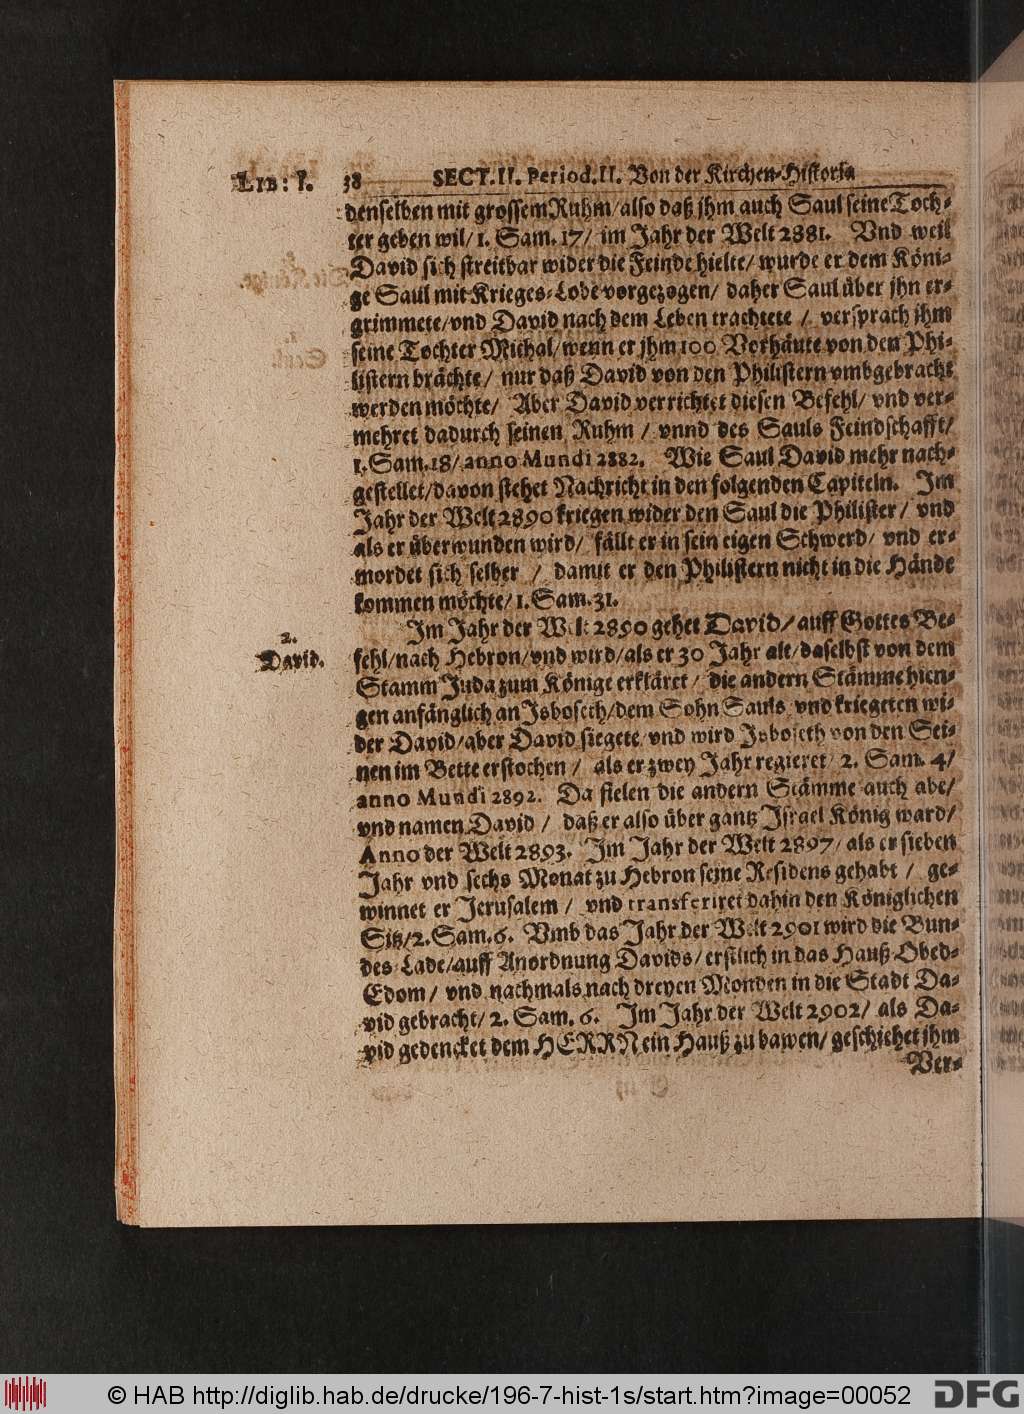 LIB: I. 38 SECT. II. Period. II. Von der Kirchen-Historia
denselben mit grossem Ruhm/ also daß jhm auch Saul seine Toch-
ter geben wil/ 1. Sam. 17/ im Jahr der Welt 2881. Vnd weil
David sich streitbar wider die Feinde hielte/ wurde er dem Köni-
ge Saul mit Krieges-Lobe vorgezogen/ daher Saul über jhn er-
grimmete/ vnd David nach dem Leben trachtete / versprach jhm
seine Tochter Michal/ wenn er jhm 100 Vorhäute von den Phi-
listern brächte/ nur daß David von den Philistern vmbgebracht
werden möchte/ Aber David verrichtet diesen Befehl/ vnd ver-
mehret dadurch seinen Ruhm / vnnd des Sauls Feindschafft/
1. Sam. 18/ anno Mundi 2882. Wie Saul David mehr nach-
gestellet/ davon stehet Nachricht in den folgenden Capiteln. Im
Jahr der Welt 2890 kriegen wider den Saul die Philister / vnd
als er überwunden wird/ fällt er in sein eigen Schwerd/ vnd er-
mordet sich selber / damit er den Philistern nicht in die Hände
kommen möchte/ 1. Sam. 31.
2.
David.
Im Jahr der Welt 2890 gehet David/ auff Gottes Be-
fehl/ nach Hebron/ vnd wird/ als er 30 Jahr alt/ daselbst von dem
Stamm Juda zum Könige erkläret / die andern Stämme hien-
gen anfänglich an Isboseth/ dem Sohn Sauls vnd kriegeten wi-
der David/ aber David siegete/ vnd wird Isboseth von den Sei-
nen im Bette erstochen / als er zwey Jahr regieret/ 2. Sam. 4/
anno Mundi 2892. Da fielen die andern Stämme auch abe/
vnd namen David / daß er also über gantz Israel König ward/
Anno der Welt 2893. Im Jahr der Welt 2897/ als er sieben
Jahr vnd sechs Monat zu Hebron seine Residens gehabt / ge-
winnet er Jerusalem / vnd transferiret dahin den Königlichen
Sitz/ 2. Sam. 6. Vmb das Jahr der Welt 2901 wird die Bun-
des-Lade/ auff Anordnung Davids/ erstlich in das Hauß Obed-
Edom / vnd nachmals nach dreyen Monden in die Stadt Da-
vid gebracht/ 2. Sam. 6. Im Jahr der Welt 2902/ als Da-
vid gedencket dem HERRN ein Hauß zu bawen/ geschiehet jhm
Ver-
© HAB http://diglib.hab.de/drucke/196-7-hist-1s/start.htm?image=00052 DFG